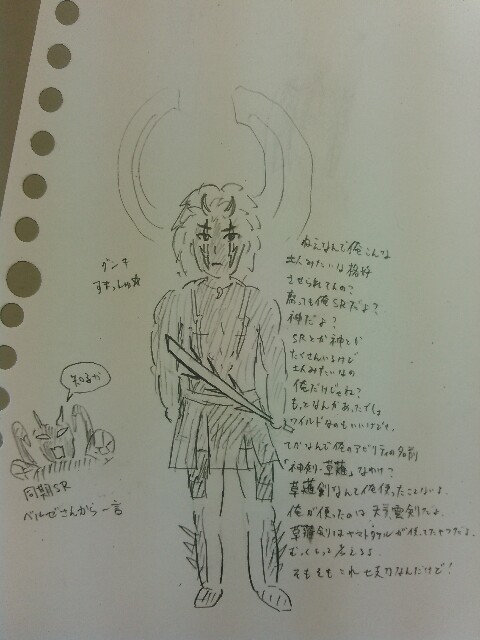 ねえなんで俺こんな
土人みたいな格好
させられてるの?
腐っても俺SRだよ?
神だよ?
SRとか神とか
たくさんいるけど
土人みたいなの
俺だけじゃね?
もっとなんかあったでしょ
ワイルドなのもいいけどさ。
てかなんで俺のアビリティの名前
「神剣・草薙」なわけ?
草薙剣なんて俺使ったことないよ。
俺が使ったのは天叢雲剣だよ。
草薙剣はヤマトタケルが使ってたやつだよ。
そもそもこれ七支刀なんだけど!
すまっしゅ☆
知るか
同期SR
ベルゼさんから一言